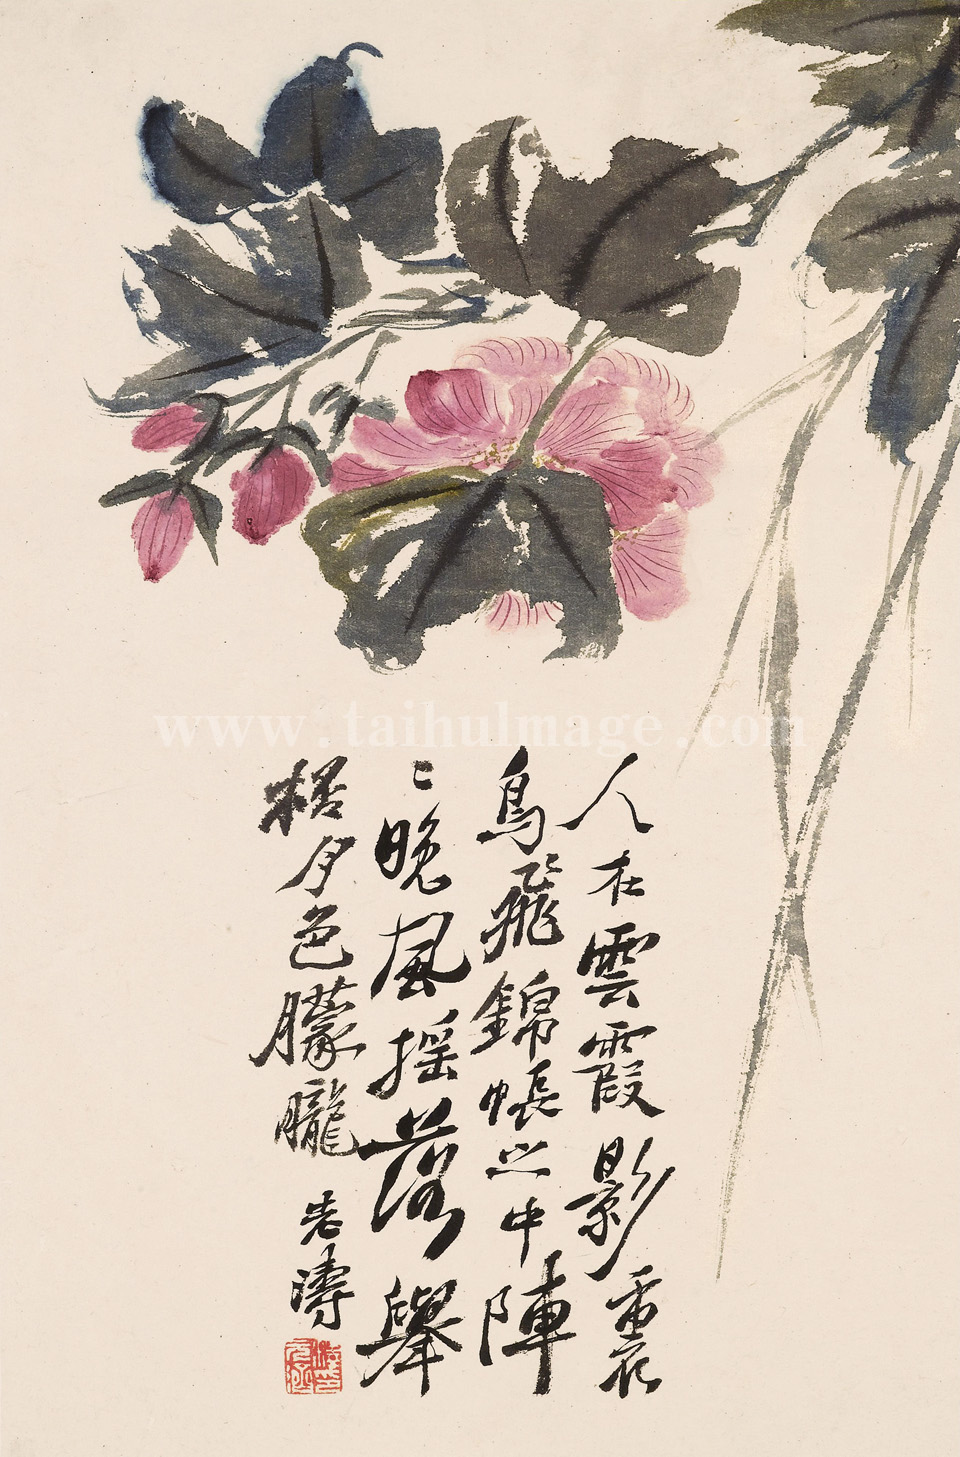 人在雲霞影裏
鳥飛錦帳之中陣
〻晚風搖落舉
桮夕色朦朧
老濤
www.taihuImage.com